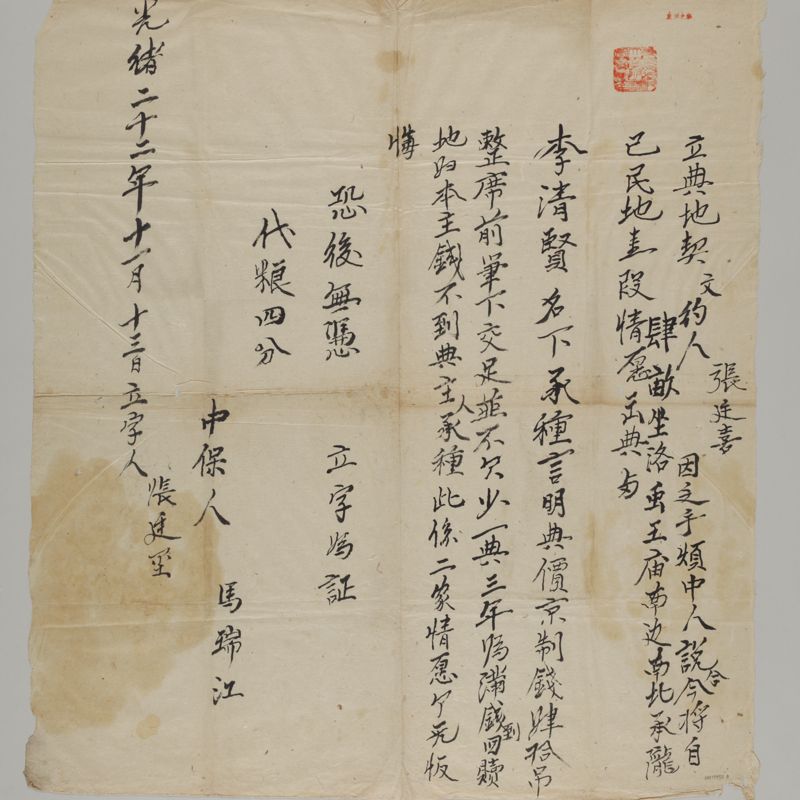 立典地契文約人張廷喜因乏手煩中人說合今將自
己民地壹段肆畝坐洛禹王庙南边南北承隴情愿出典与
李清賢名下承種言明典價京制錢肆拾吊
整席前筆下交足並不欠少一典三年為滿錢到回贖
地归本主錢不到典主人承種此係二家情愿各无恢
悔
恐後無憑 立字為証
代粮四分
中保人 馬瑞江
光緒二十二年十一月十三日立字人 張廷